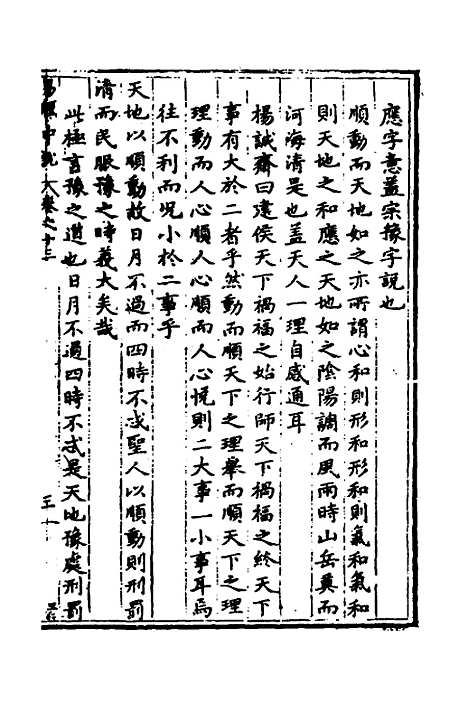 應字意蓋宗豫字說也
順動而天地如之亦所謂心和則形和形和則氣和氣和
則天地之和應之天地如之陰陽調而風雨時山岳奠而
河海清是也蓋天人一理自感通耳
楊誠齋曰建侯天下禍福之始行師天下禍福之終天下
事有大於二者乎然動而順天下之理舉而順天下之理
理動而人心順人心順而人心悅則二大事一小事耳焉
往不利而况小於二事乎
天地以順動故日月不過而四時不忒聖人以順動則刑罰
清而民服豫之時義大矣哉
此極言豫之道也日月不過四時不忒是天地豫處刑罰
易經中說 大卷之十三 三十